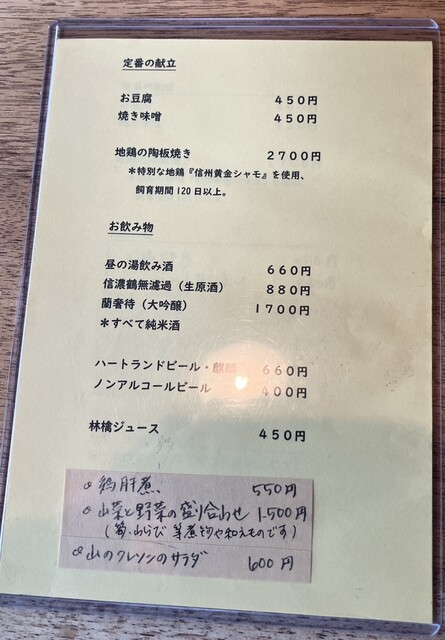 定番の献立
お豆腐 450円
焼き味噌 450円
地鶏の陶板焼き 2700円
＊特別な地鶏『信州黄金シャモ』を使用、
飼育期間120日以上。
お飲み物
昼の湯飲み酒 660円
信濃鶴無濾過（生原酒） 880円
蘭奢待（大吟醸） 1700円
＊すべて純米酒
ハートランドビール・麒麟 660円
ノンアルコールビール 400円
林檎ジュース 450円
鶏肝煮 550円
山菜と野菜の盛り合わせ 1,500円
（筍、山らび 等煮物や和えものです）
山のクレソンのサラダ 600円